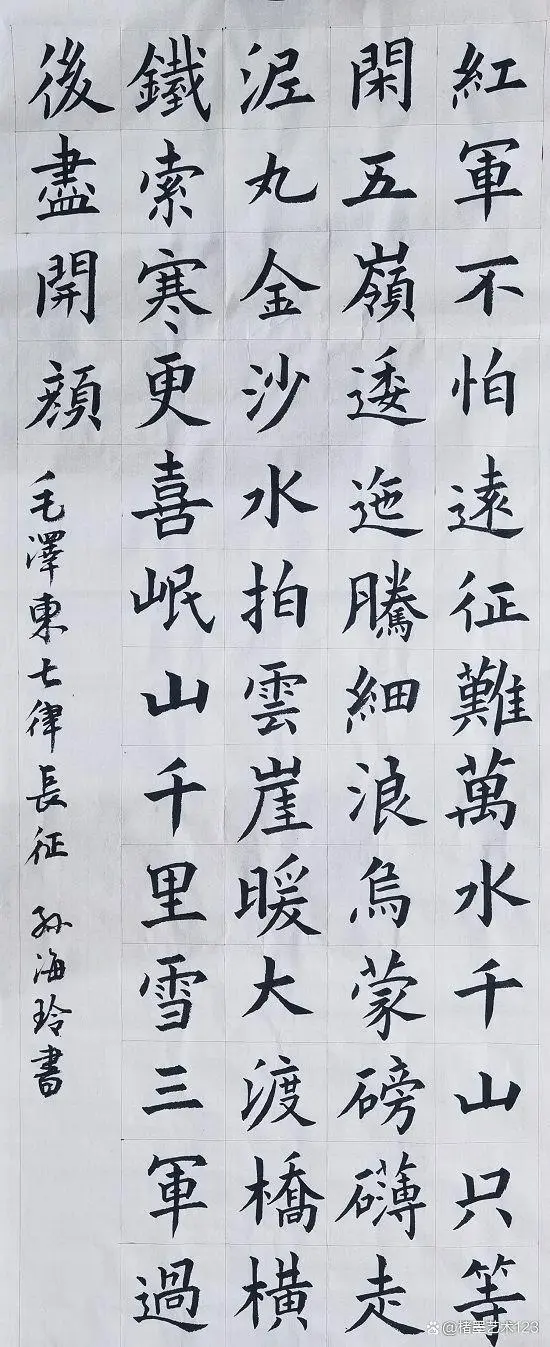 紅軍不怕遠征難萬水千山只等
閑五嶺逶迤騰細浪烏蒙磅礴走
泥丸金沙水拍雲崖暖大渡橋横
鐵索寒更喜岷山千里雪三軍過
後盡開顔
毛澤東七律長征 孙海玲書
@楮墨艺术123